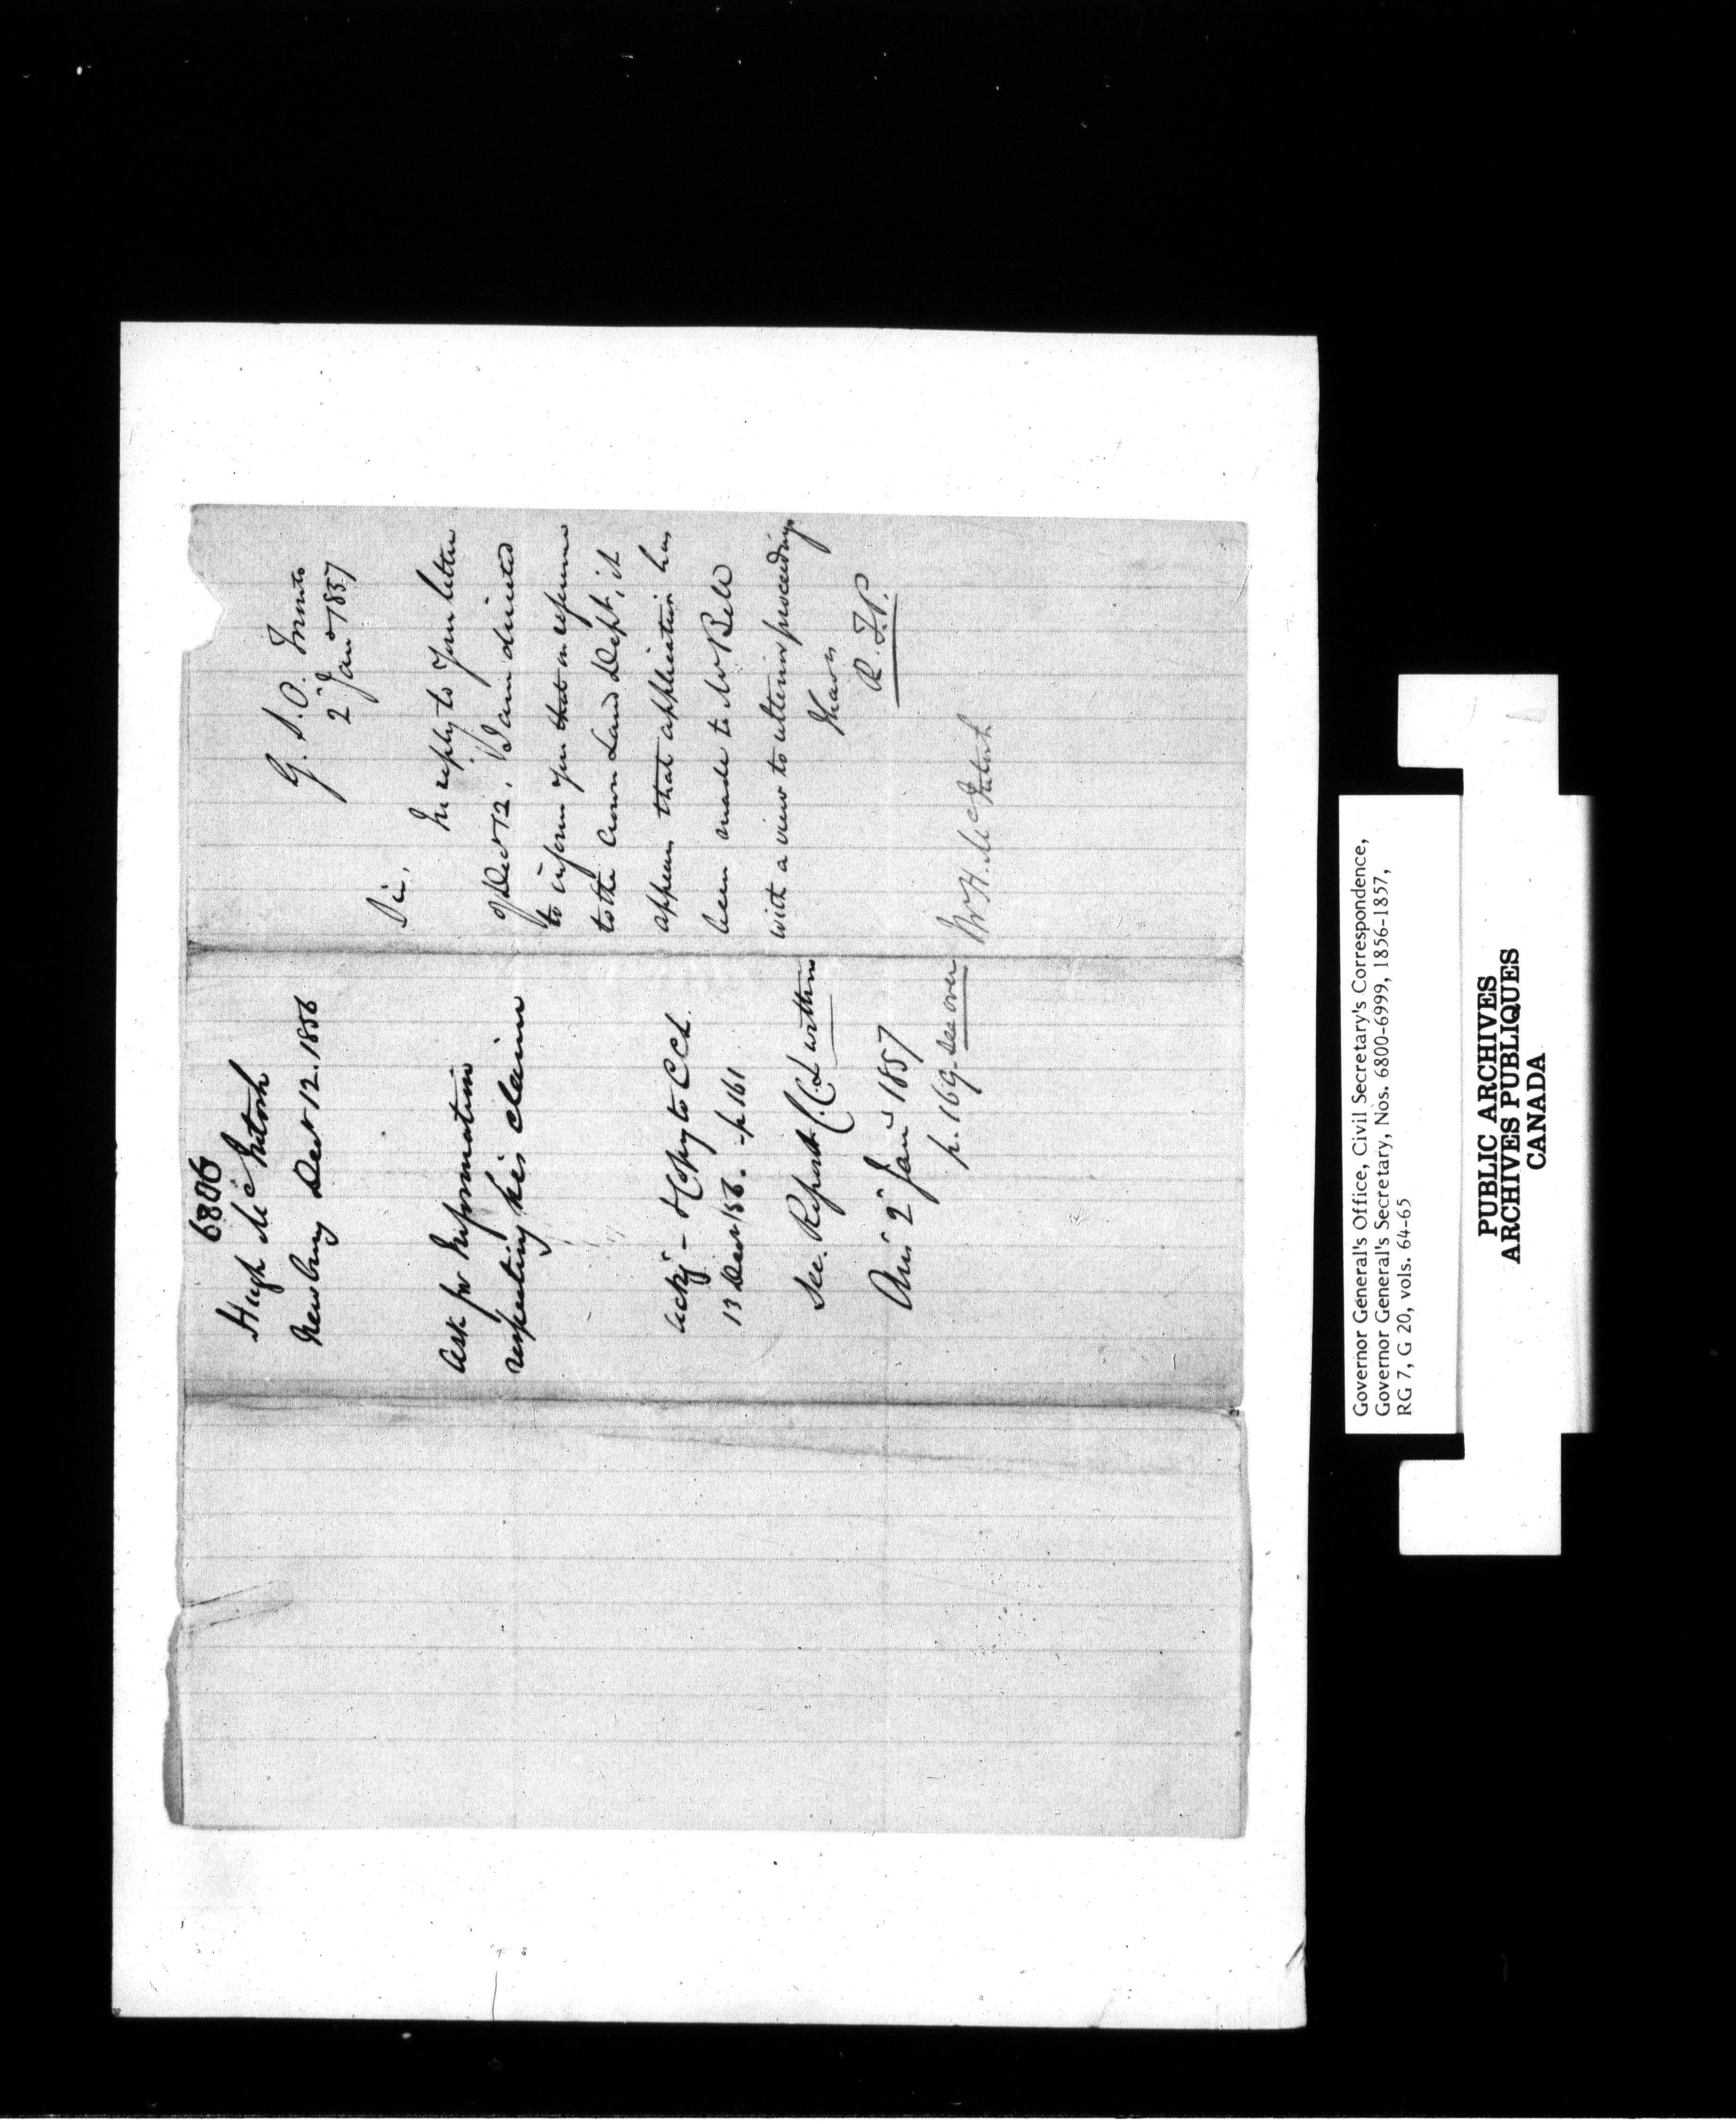 6886
Hugh McIntosh
Newbury Decr 12. 1856
Ask for Information
respecting his claim
Ackg - & Copy to CCL.
13 Decr /56. - p 161
See. Report C.C.L within
Ansd 2d Jany 1857
p. 169. See over
G. S. O. Toronto
2d Jany 1857
Sir,
In reply to your letter
of Decr 12, I am directed
to inform you that on reference
to the Crown Land Dept, it
appears that application has
been made to Mr Bell
with a view to ulterior proceedings
I have
R. T. P.
Mr H. McIntosh
Governor General's Office, Civil Secretary's Correspondence,
Governor General's Secretary, Nos. 6800-6999, 1856-1857,
RG 7, G 20, vols. 64-65
PUBLIC ARCHIVES
ARCHIVES PUBLIQUES
CANADA